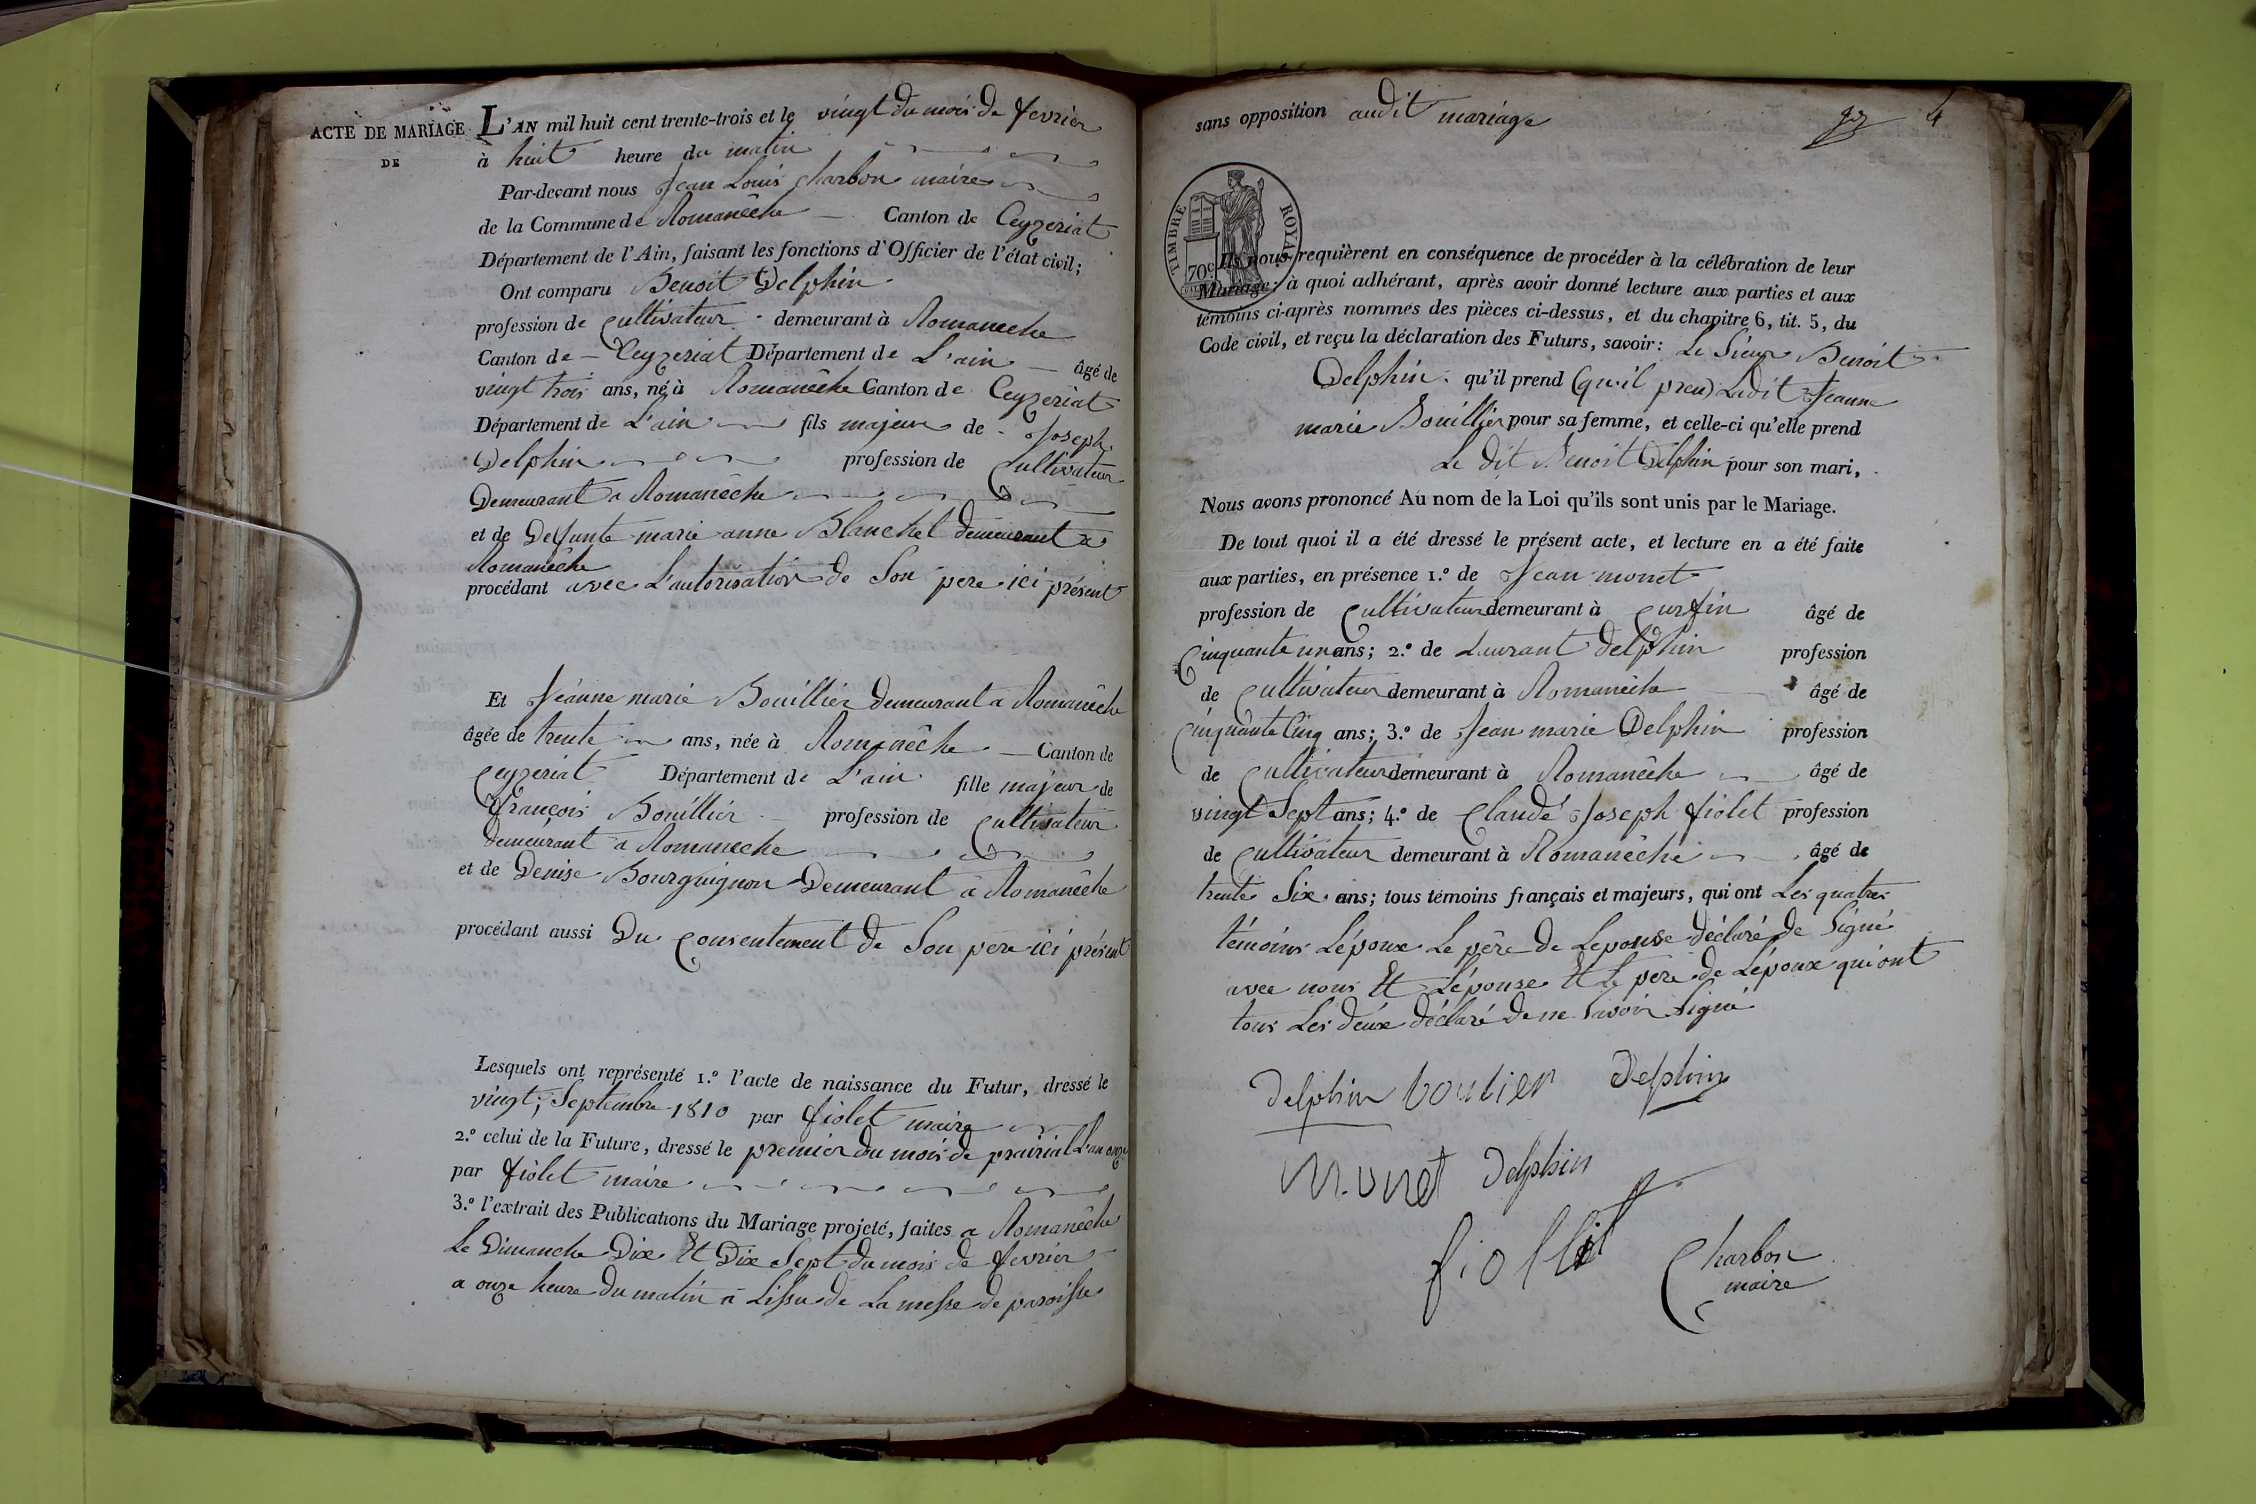 ACTE DE MARIAGE
DE
L'AN mil huit cent trente-trois et le vingt du mois de fevrier
à huit heure du matin
Par-devant nous Jean Louis Charbon maire
de la Commune de Romanêche Canton de Ceyzeriat
Département de l'Ain, faisant les fonctions d'Officier de l'état civil;
Ont comparu Benoit Delphin
profession de Cultivateur demeurant à Romaneche
Canton de Ceyzeriat Département de L'ain âgé de
vingt trois ans, né à Romanêche Canton de Ceyzeriat
Département de L'ain fils majeur de Joseph
Delphin profession de Cultivateur
Demeurant a Romanêche
et de Defunte marie anne Blanchet demeurant a
Romanêche
procédant avec L'autorisation de Son pere ici présent
Et Jeanne marie Bouillier demeurant a Romanêche
âgée de trente ans, née à Romanêche Canton de
Ceyzeriat Département de L'ain fille majeur de
françois Bouillier profession de Cultivateur
demeurant a Romaneche
et de Denise Bourguignon Demeurant a Romanêche
procédant aussi Du Consentement de Son pere ici présent
Lesquels ont représenté 1.º l'acte de naissance du Futur, dressé le
vingt, Septembre 1810 par fiolet maire
2.º celui de la Future, dressé le premier du mois de prairial L'an onze
par fiolet maire
3.º l'extrait des Publications du Mariage projeté, faites a Romanêche
Le Dimanche Dix Et Dix Sept du mois de fevrier
a onze heure du matin a Lissu de La messe de paroisse
sans opposition audit mariage
4
TIMBRE ROYAL
70c
Ils nous requièrent en conséquence de procéder à la célébration de leur
Mariage: à quoi adhérant, après avoir donné lecture aux parties et aux
témoins ci-après nommés des pièces ci-dessus, et du chapitre 6, tit. 5, du
Code civil, et reçu la déclaration des Futurs, savoir: Le Sieur Benoit
Delphin qu'il prend (qu'il pren) Ladit Jeanne
marie Bouillier pour sa femme, et celle-ci qu'elle prend
Le dit Benoit Delphin pour son mari,
Nous avons prononcé Au nom de la Loi qu'ils sont unis par le Mariage.
De tout quoi il a été dressé le présent acte, et lecture en a été faite
aux parties, en présence 1.º de Jean monet
profession de Cultivateur demeurant à Curfin âgé de
Cinquante un ans; 2.º de Laurant Delphin profession
de Cultivateur demeurant à Romanêche âgé de
Cinquante Cinq ans; 3.º de Jean marie Delphin profession
de Cultivateur demeurant à Romanêche âgé de
vingt Sept ans; 4.º de Claude Joseph fiolet profession
de Cultivateur demeurant à Romanêche âgé de
trente Six ans; tous témoins français et majeurs, qui ont Les quatres
témoins L'époux Le père de L'epouse déclaré de Signé
avec nous Et L'épouse Et Le pere de L'époux qui ont
tous Les deux déclaré de ne Savoir Signé
Delphin boulier Delphin
Monet Delphin
fiollet Charbon
maire